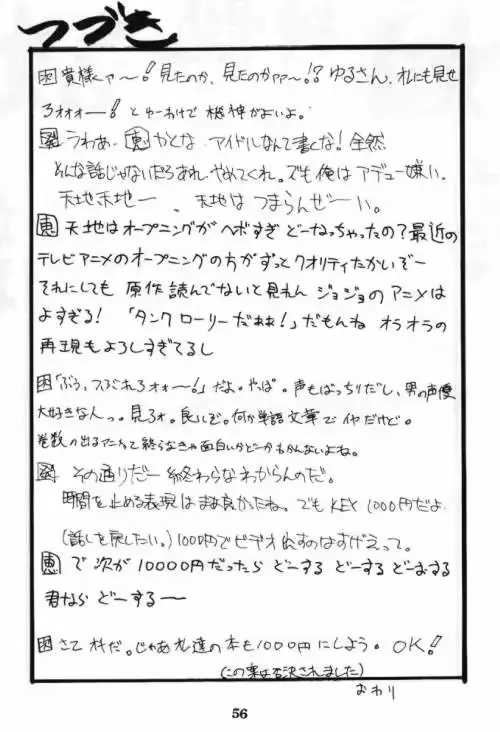 つづき
困 貴様ァ〜! 見たのか、見たのかァァ〜!? ゆるさん、オレにも見せ
ろォォォー! とゆーわけで 機神がよいよ。
うわあ。恵 かとな アイドルなんて書くな! 全然
そんな話じゃないだろあれ。やめてくれ。でも俺はアデュー嫌い。
天地天地ー 、天地は つまらんぜーい。
恵 天地はオープニングが ヘボすぎ どーなっちゃったの?最近の
テレビアニメのオープニングの方がずっとクオリティたかいぞー
それにしても 原作読んでないと見れん ジョジョのアニメは
よすぎる! 「タンクローリーだぁぁ!」だもんね オラオラの
再現もよろしすぎてるし
困「ぶう、つぶれろォォ〜!」だよ。やっぱ。声もばっちりだし、男の声優
大好きな人っ。見ろォ。良いぞ。何か単語文章でイヤだけど。
巻数の出るアニメって終らなきゃ面白いかどーかもわかんないよね。
その通りだー 終わらなわからんのだ。
時間を止める表現はまぁ良かったね。でもKEY 1000円だよ
(話しを戻したい。)1000円でビデオ出すのはすげえって。
恵 で 次が10000円だったら どーする どーする どーする
君なら どーするー
困 さて オチだ。じゃあオレ達の本も1000円にしよう。OK!!
(この案は否決されました)
おわり
56